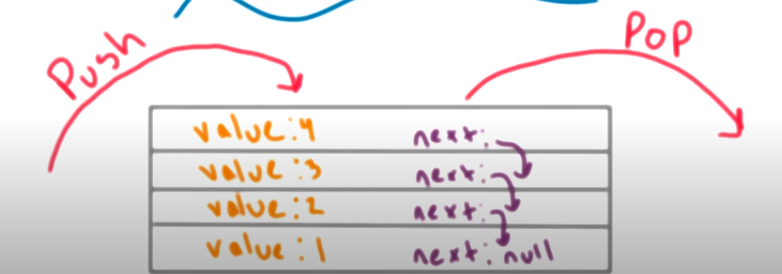 Push
Pop
value:4 next:
value:3 next:
value:2 next:
value:1 next: null